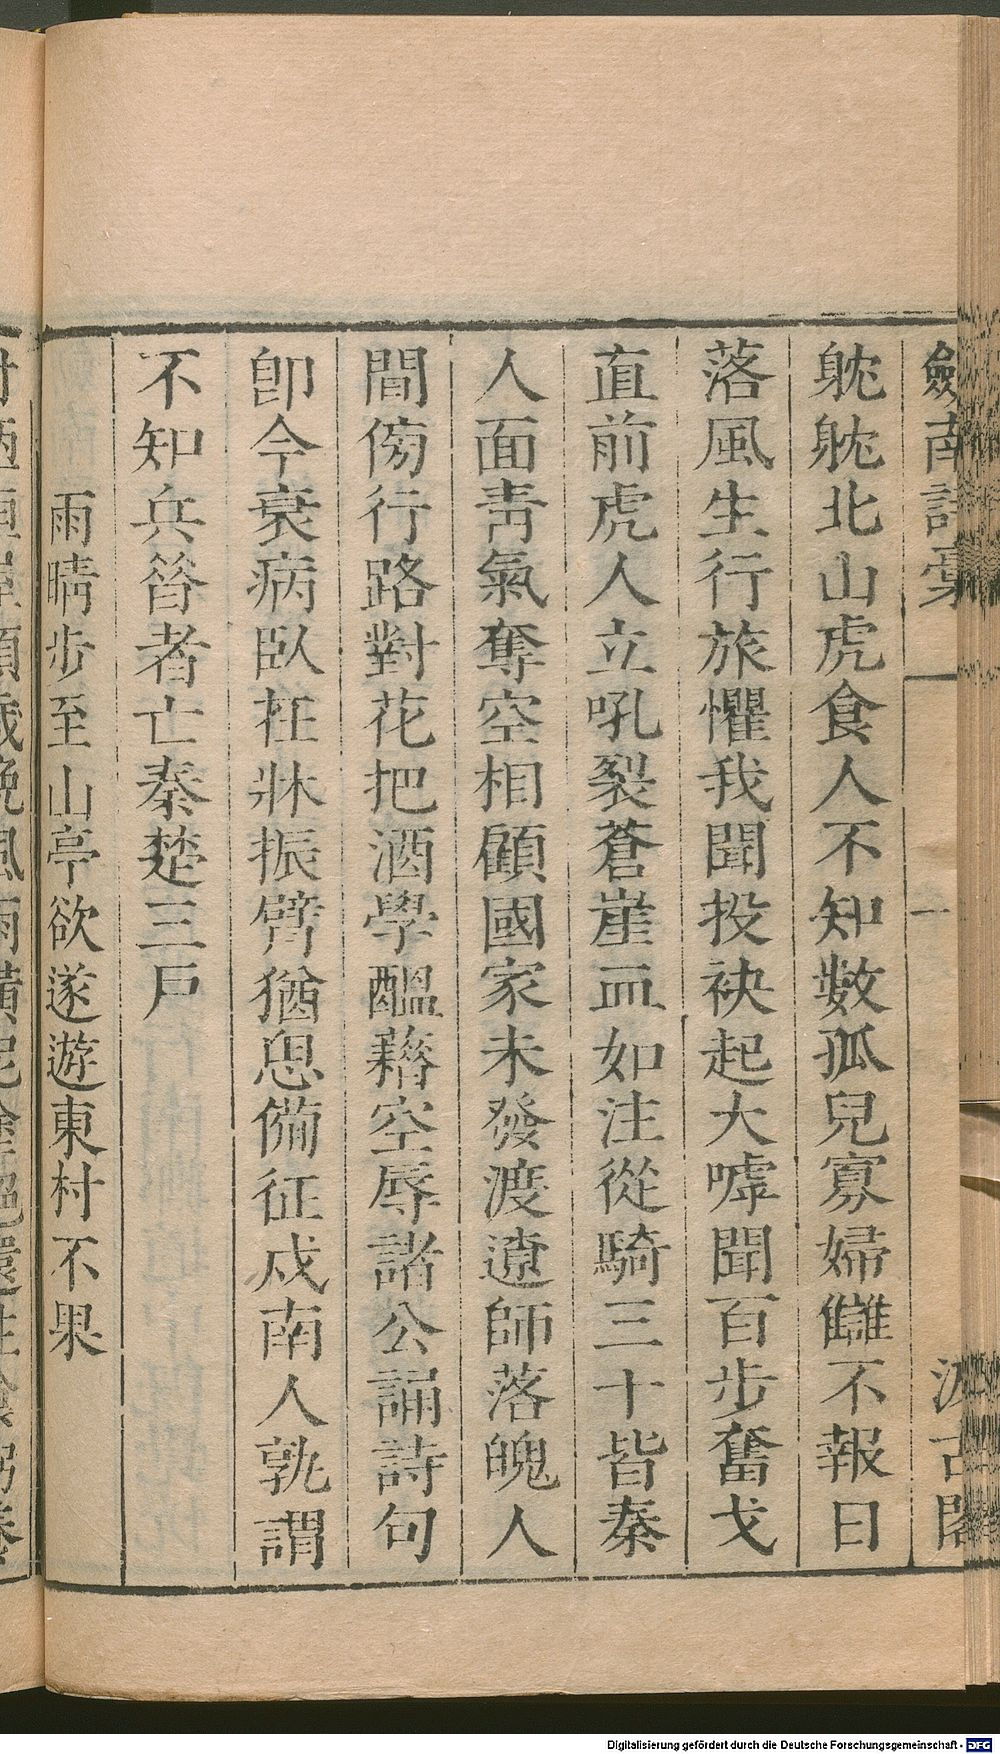 劒南詩稾
一
汲古閣
眈眈北山虎食人不知數孤兒寡婦讎不報日
落風生行旅懼我聞投袂起大嘑聞百步奮戈
直前虎人立吼裂蒼崖血如注從騎三十皆秦
人面靑氣奪空相顧國家未發渡遼師落魄人
間傍行路對花把酒學醞藉空辱諸公誦詩句
卽今衰病臥在牀振臂猶思備征戍南人孰謂
不知兵昝者亡秦楚三戶
雨晴步至山亭欲遂遊東村不果
Digitalisierung gefördert durch die Deutsche Forschungsgemeinschaft - DFG